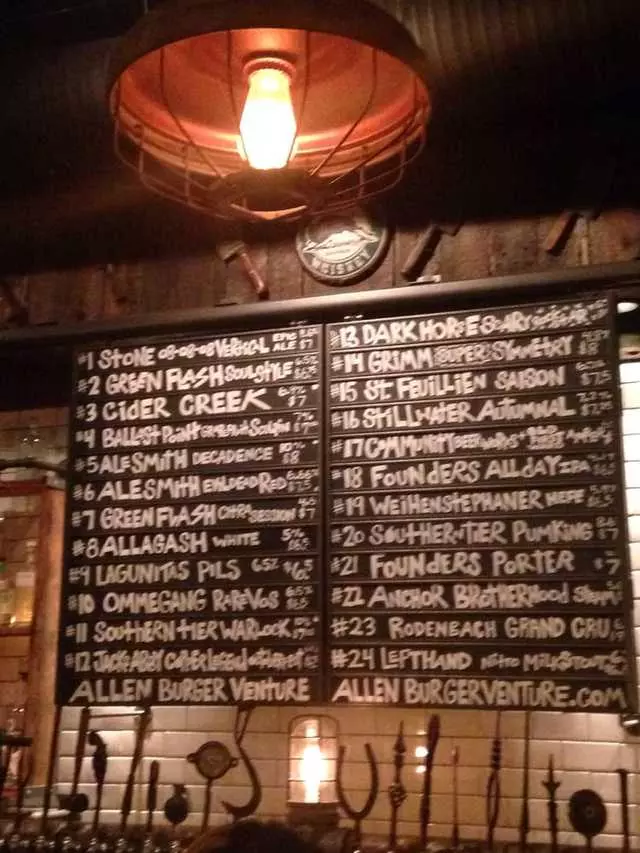 WHISKEY
#1 STONE 08-08-08 VERTICAL EPIC ALE $7
#2 GREEN FLASH SOULSTYLE 6.5%
#3 CIDER CREEK $7
#4 BALLAST POINT GRAPEFRUIT SCULPIN 7%
#5 ALESMITH DECADENCE 10% $8
#6 ALESMITH EVIL DEAD RED 6.66%
#7 GREEN FLASH CITRA SESSION $7
#8 ALLAGASH WHITE 5%
#9 LAGUNITAS PILS 6.5% $6.5
#10 OMMEGANG RAREVOS 6.5%
#11 SOUTHERN TIER WARLOCK
#12 JACK ABBY
ALLEN BURGER VENTURE
#13 DARK HORSE SCARY
#14 GRIMM SUPER SYMMETRY $8
#15 ST. FEUILLIEN SAISON $7.5
#16 STILLWATER AUTUMNAL
#17 COMMUNITY BEER WORKS
#18 FOUNDERS ALLDAY IPA
#19 WEIHENSTEPHANER HEFE
#20 SOUTHERN TIER PUMKING $7
#21 FOUNDERS PORTER $7
#22 ANCHOR BROTHERHOOD STEAM
#23 RODENBACH GRAND CRU
#24 LEFTHAND NITRO MILK STOUT
ALLEN BURGERVENTURE.COM